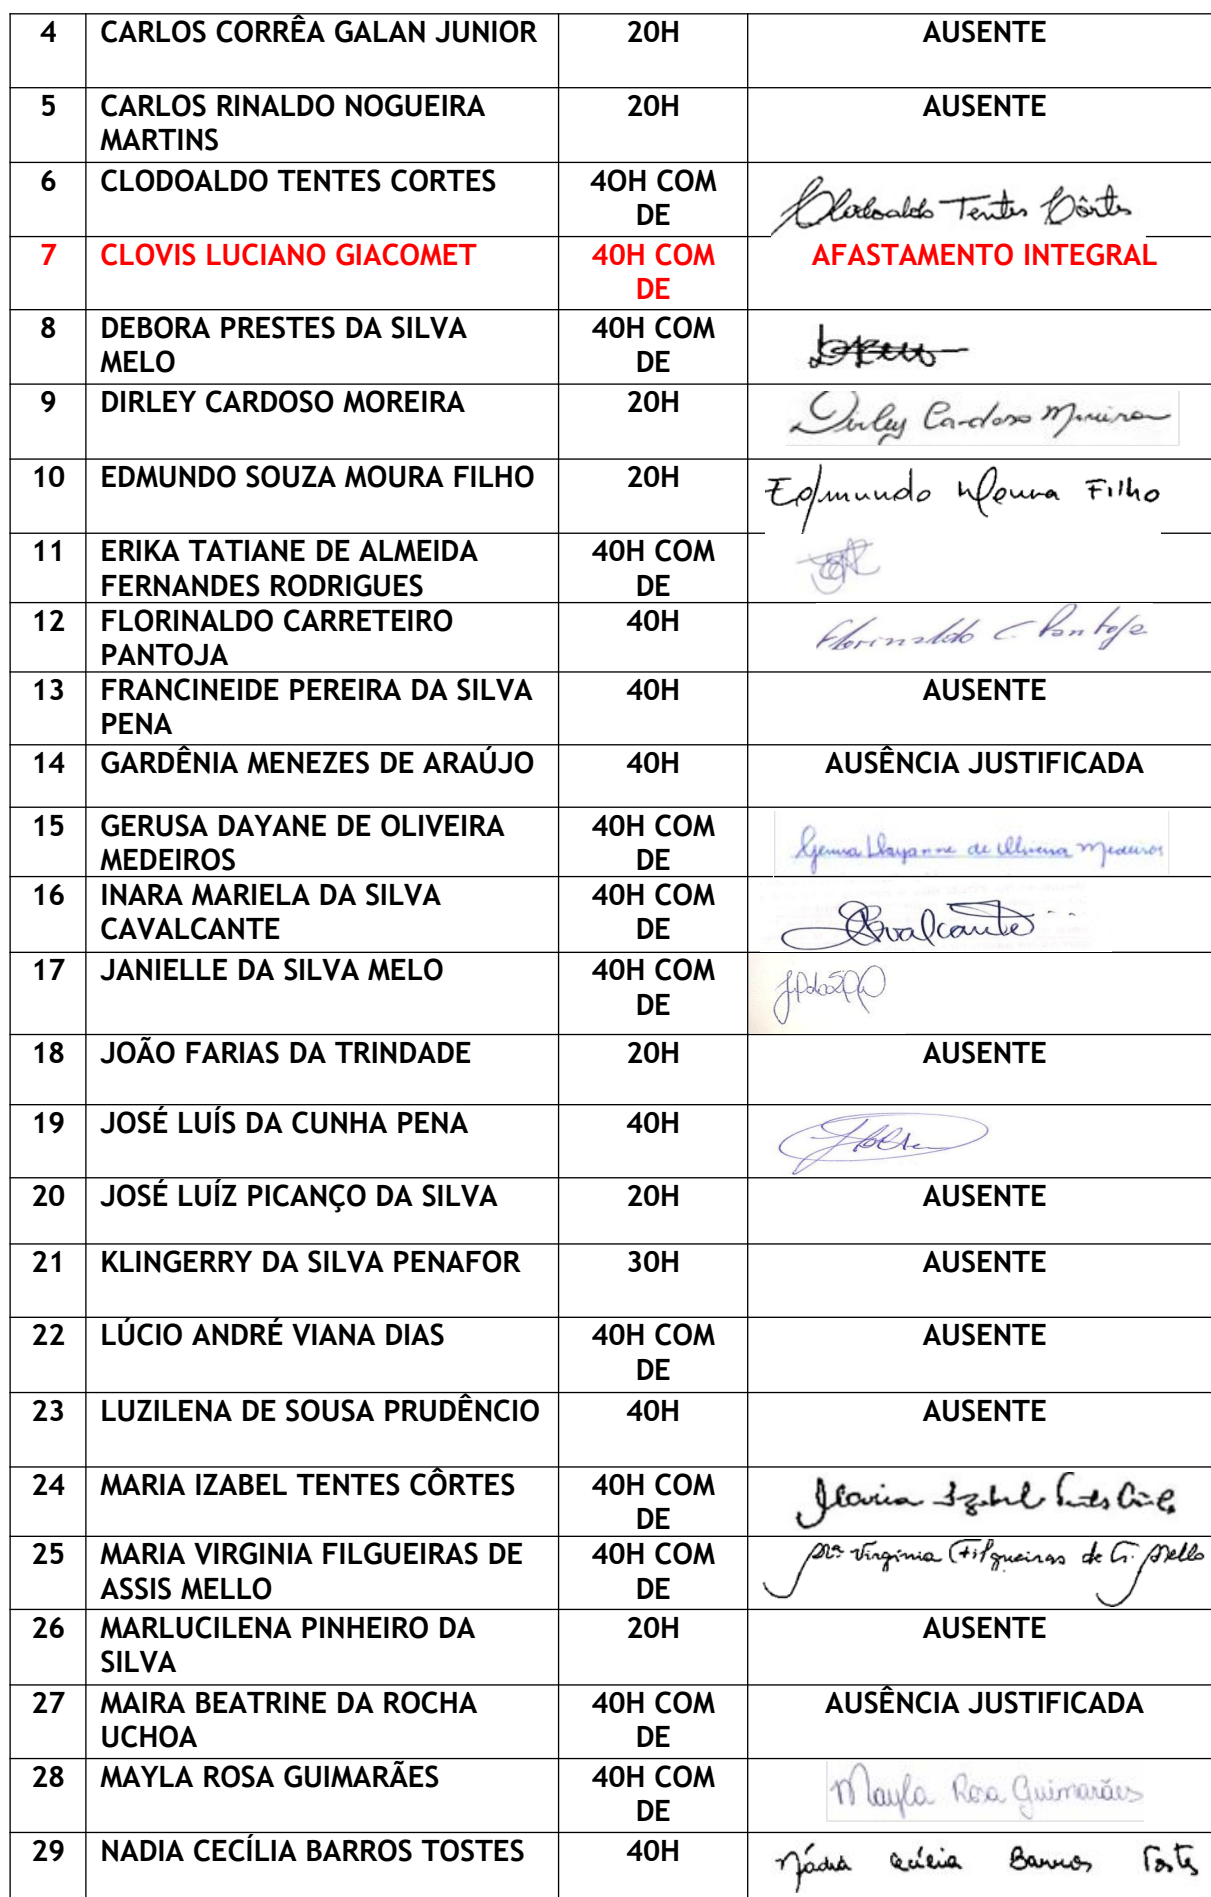 4 CARLOS CORRÊA GALAN JUNIOR 20H AUSENTE
5 CARLOS RINALDO NOGUEIRA 20H AUSENTE
MARTINS
6 CLODOALDO TENTES CORTES 4OH COM
DE Clodoaldo Tentes Côrtes
7 CLOVIS LUCIANO GIACOMET 40H COM AFASTAMENTO INTEGRAL
DE
8 DEBORA PRESTES DA SILVA 40H COM
MELO DE
9 DIRLEY CARDOSO MOREIRA 20H Dirley Cardoso Moreira
10 EDMUNDO SOUZA MOURA FILHO 20H Edmundo Moura Filho
11 ERIKA TATIANE DE ALMEIDA 40H COM
FERNANDES RODRIGUES DE
12 FLORINALDO CARRETEIRO 40H Florinaldo C Pantoja
PANTOJA
13 FRANCINEIDE PEREIRA DA SILVA 40H AUSENTE
PENA
14 GARDÊNIA MENEZES DE ARAÚJO 40H AUSÊNCIA JUSTIFICADA
15 GERUSA DAYANE DE OLIVEIRA 40H COM
MEDEIROS DE Gerusa Dayanne de Oliveira Medeiros
16 INARA MARIELA DA SILVA 40H COM
CAVALCANTE DE Cavalcante
17 JANIELLE DA SILVA MELO 40H COM
DE
18 JOÃO FARIAS DA TRINDADE 20H AUSENTE
19 JOSÉ LUÍS DA CUNHA PENA 40H
20 JOSÉ LUÍZ PICANÇO DA SILVA 20H AUSENTE
21 KLINGERRY DA SILVA PENAFOR 30H AUSENTE
22 LÚCIO ANDRÉ VIANA DIAS 40H COM AUSENTE
DE
23 LUZILENA DE SOUSA PRUDÊNCIO 40H AUSENTE
24 MARIA IZABEL TENTES CÔRTES 40H COM Maria Izabel Tentes Côrtes
DE
25 MARIA VIRGINIA FILGUEIRAS DE 40H COM Mª Virginia Filgueiras de A. Mello
ASSIS MELLO DE
26 MARLUCILENA PINHEIRO DA 20H AUSENTE
SILVA
27 MAIRA BEATRINE DA ROCHA 40H COM AUSÊNCIA JUSTIFICADA
UCHOA DE
28 MAYLA ROSA GUIMARÃES 40H COM Mayla Rosa Guimarães
DE
29 NADIA CECÍLIA BARROS TOSTES 40H Nádia Cecília Barros Tostes